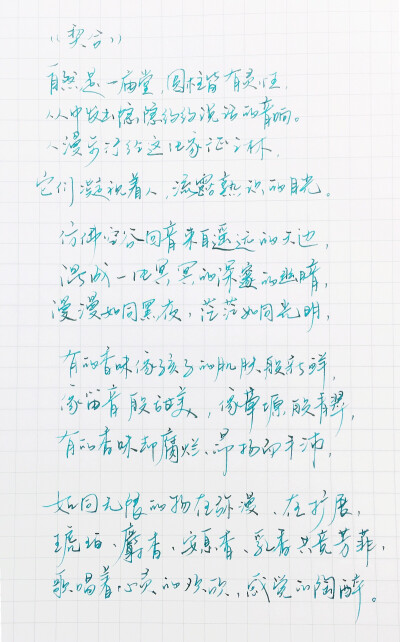 《契合》
自然是一庙堂,圆柱皆有灵性,
从中发出隐隐约约说话的音响。
人漫步行经这片象征之林,
它们凝视着人,流露熟识的目光。
仿佛空谷回音来自遥远的天边,
混成一片冥冥的深邃的幽暗,
漫漫如同黑夜,茫茫如同光明,
有的香味像孩子的肌肤般新鲜,
像笛音般甜美,像草原般青翠,
有的香味却腐烂、昂扬而丰沛,
如同无限的物在弥漫、在扩展,
琥珀、麝香、安息香、乳香共竞芳菲,
歌唱着心灵的欢欣,感觉的陶醉。